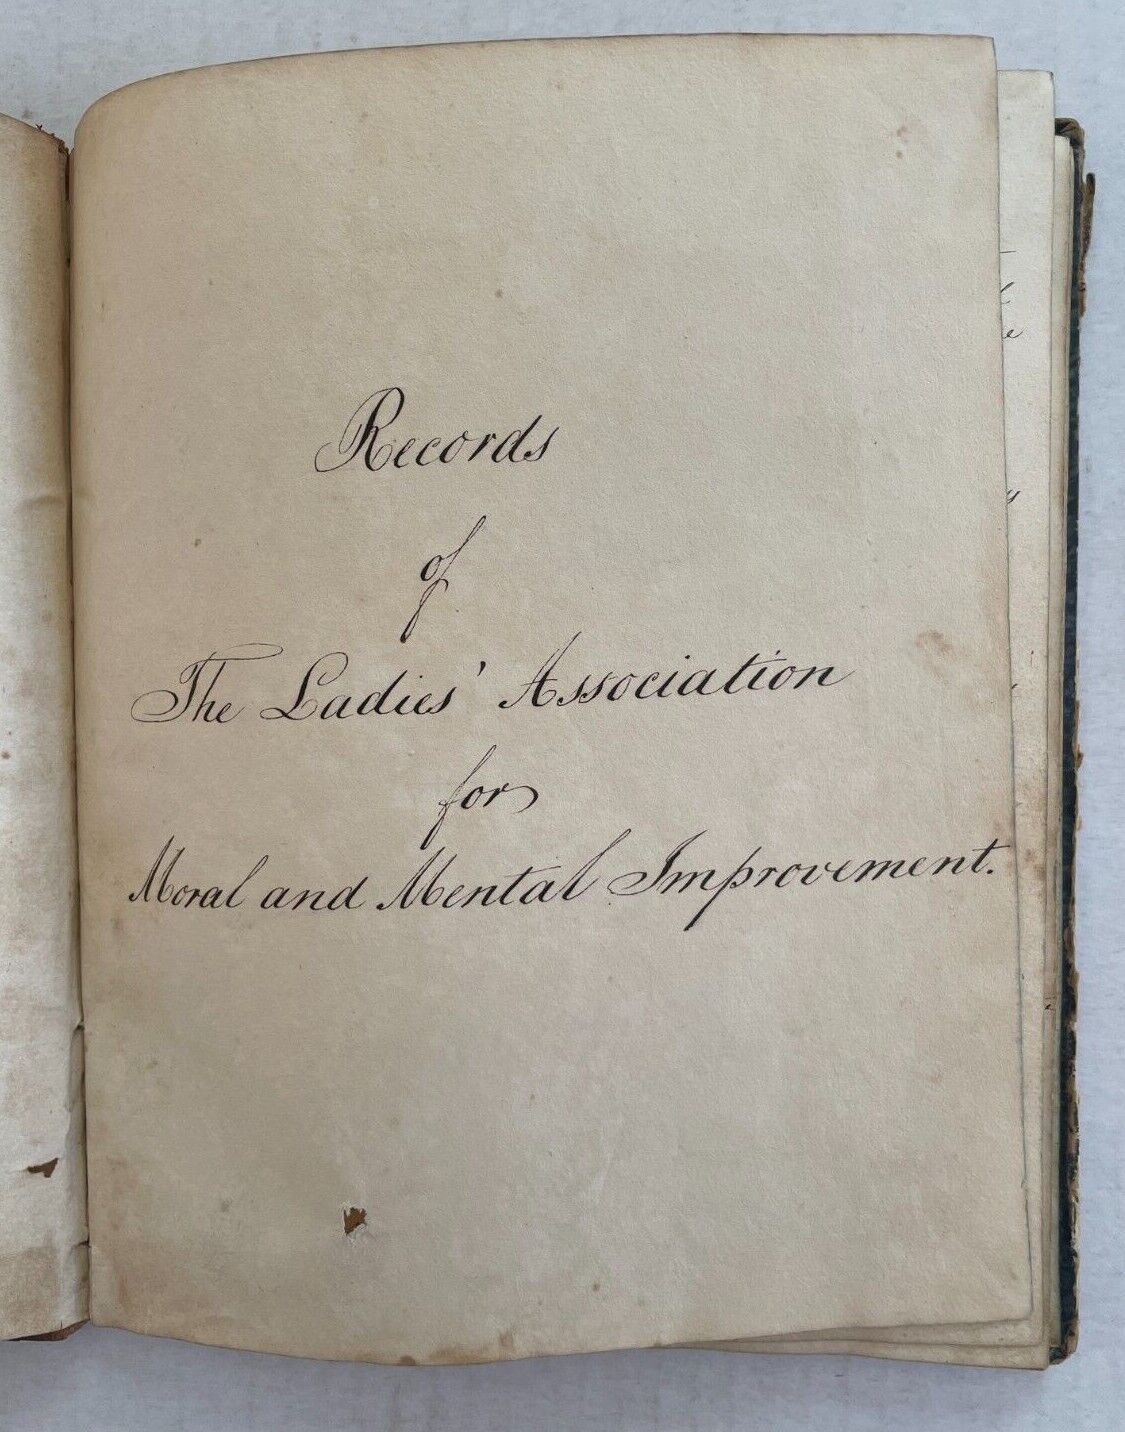 Records
of
The Ladies' Association
for
Moral and Mental Improvement.